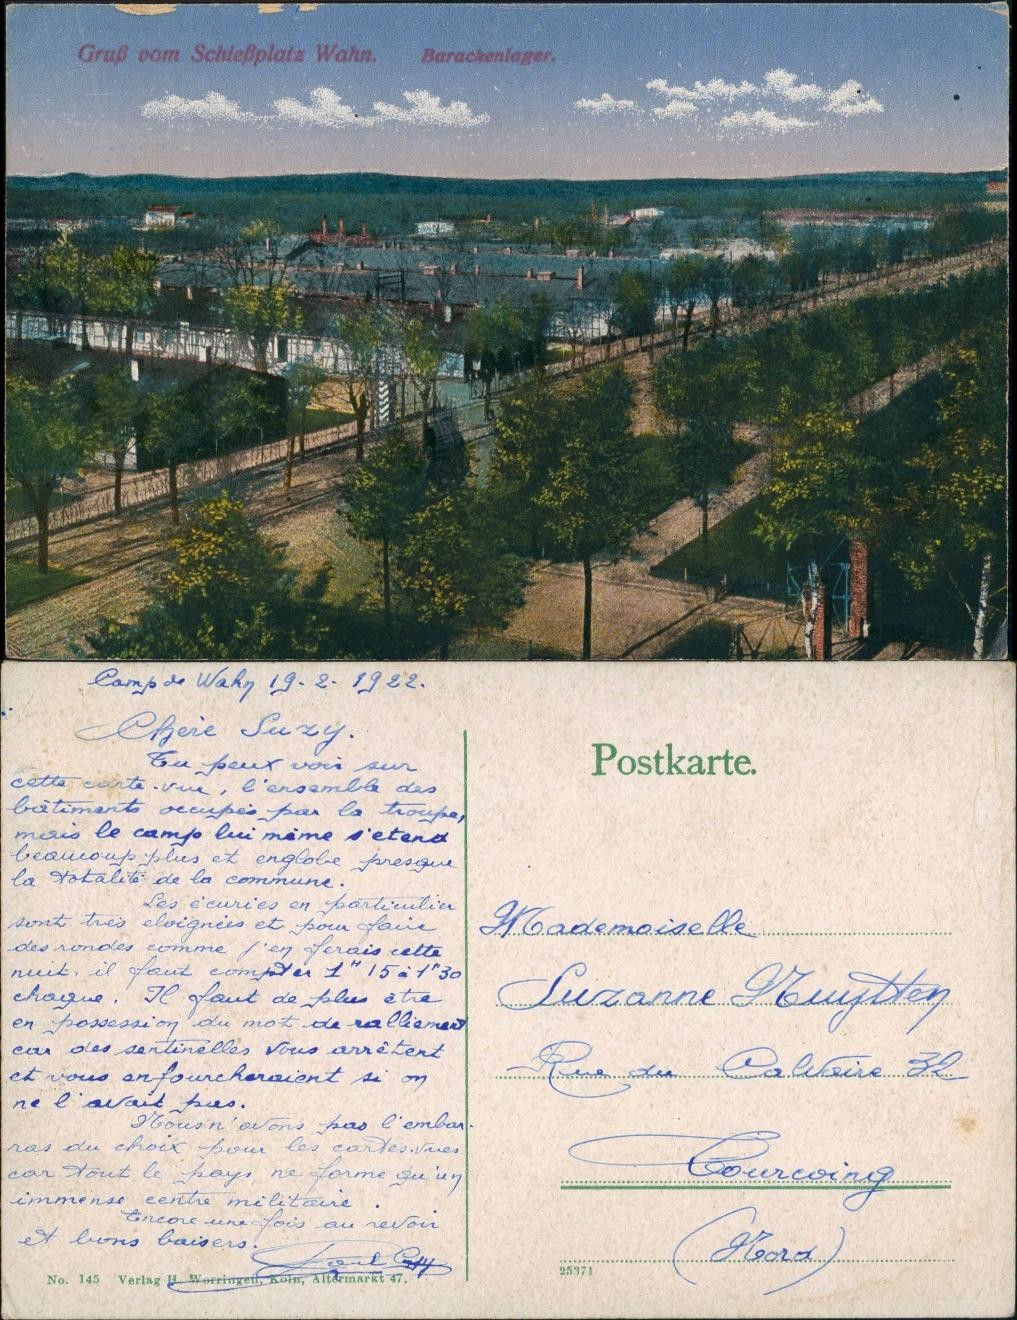 Gruß vom Schießplatz Wahn. Barackenlager.
Camp de Wahn 19-2-1922.
Chère Suzy.
Tu peux voir sur
cette carte-vue, l'ensemble des
bâtiments occupés par la troupe,
mais le camp lui même s'étend
beaucoup plus et englobe presque
la totalité de la commune.
Les écuries en particulier
sont très éloignées et pour faire
des rondes comme j'en ferais cette
nuit, il faut compter 1" 15 à 1"30
chaque. Il faut de plus être
en possession du mot de ralliement
car des sentinelles vous arrêtent
et vous enfourcheraient si on
ne l'avait pas.
Nous n'avons pas l'embar-
ras du choix pour les cartes-vues
car tout le pays ne forme qu'un
immense centre militaire.
Encore une fois au revoir
et bons baisers.
Paul
No. 145 Verlag H. Worringen, Köln, Altermarkt 47.
Postkarte.
Mademoiselle
Suzanne
Rue du Calvaire 32
Tourcoing
(Nord)
25371